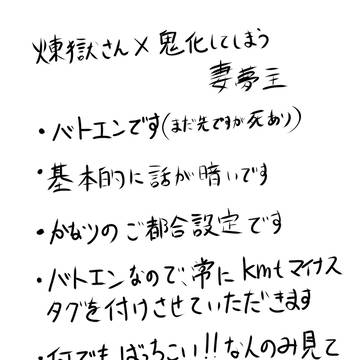 煉獄さん×鬼化してしまう
妻夢主
・バトエンです(まだ先ですが死あり)
・基本的に話が暗いです
・かなりのご都合設定です
・バトエンなので、常にkmtマイナス
タグを付けさせていただきます
・何でもばっちこい!!な人のみ見て